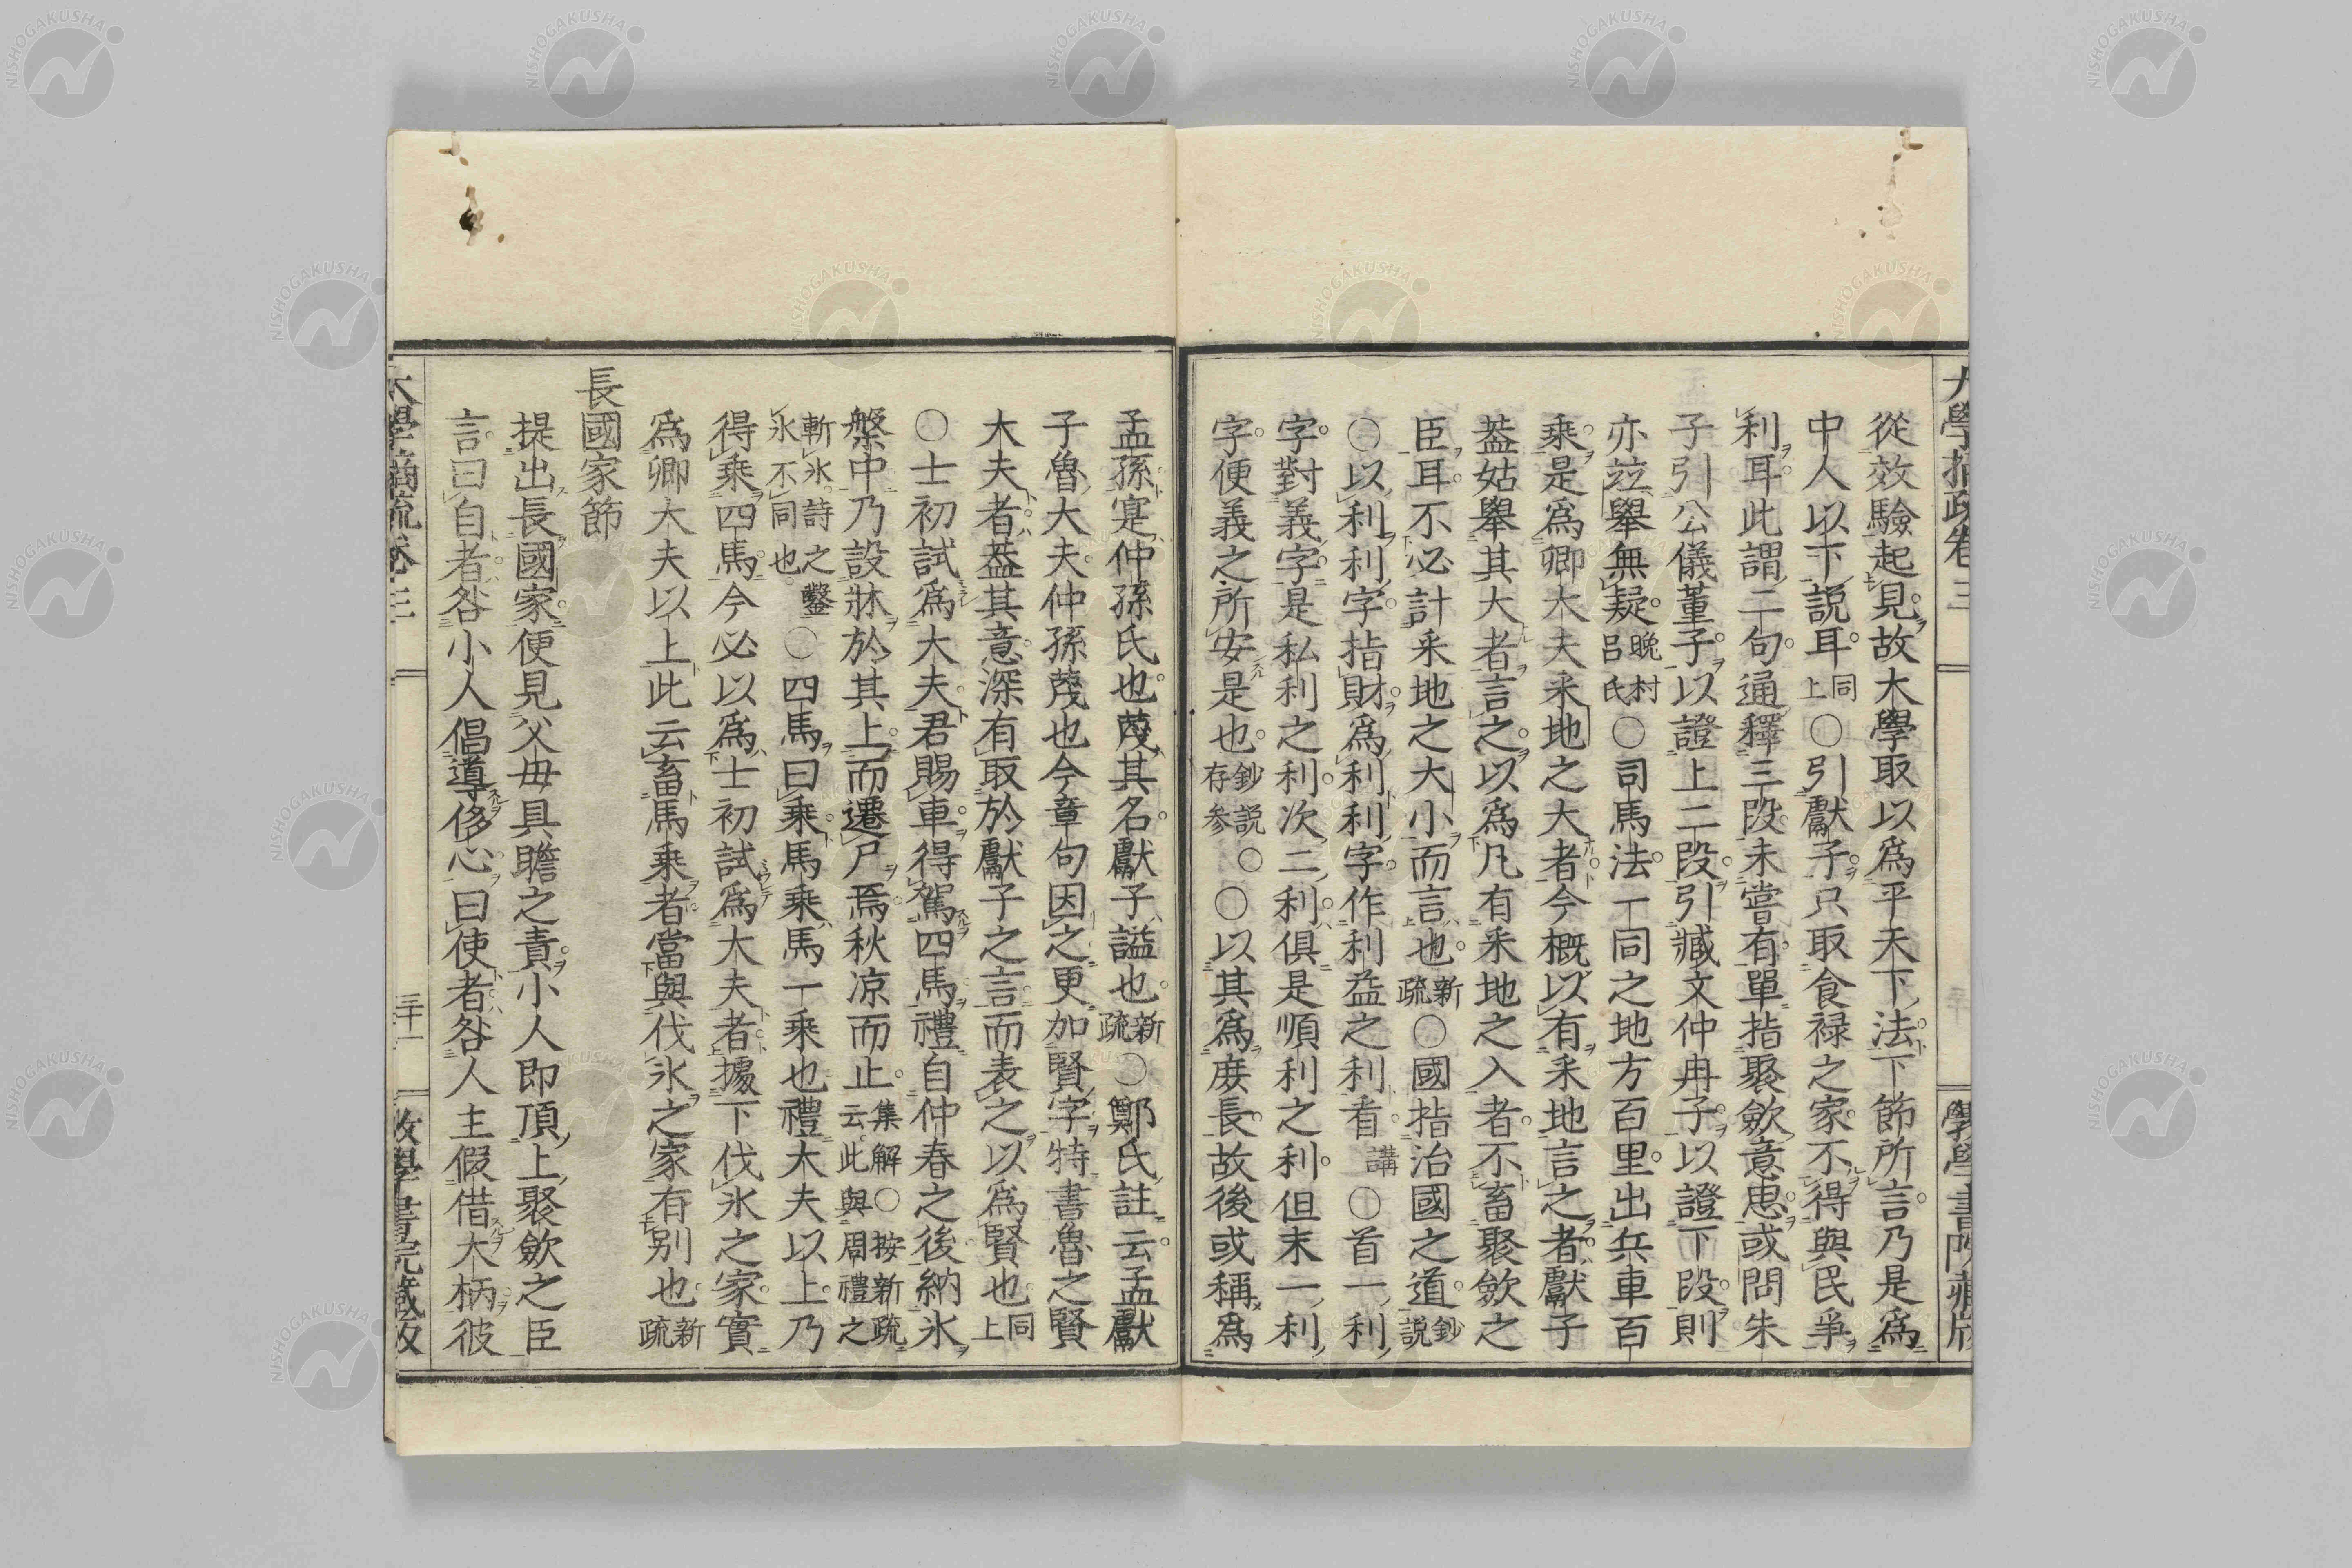 從效驗起見故大學取以爲平天下法下節所言乃是爲
中人以下說耳同上○引獻子只取食祿之家不得與民爭
利耳此謂二句通釋三段未嘗有單指聚斂意思或問朱
子引公儀董子以證上二段引臧文仲冉子以證下段則
亦竝舉無疑晚村呂氏○司馬法一同之地方百里出兵車百
乘是爲卿大夫采地之大者今概以有采地言之者獻子
蓋姑舉其大者言之以爲凡有采地之入者不畜聚斂之
臣耳不必計采地之大小而言也新疏○國指治國之道鈔說
○以利利字指財爲利利字作利益之利看講○首一利
字對義字是私利之利次二利俱是順利之利但末一利
字便義之所安是也鈔說存參○○以其爲庶長故後或稱爲
孟孫寔仲孫氏也蔑其名獻子諡也新疏○鄭氏註云孟獻
子魯大夫仲孫蔑也今章句因之更加賢字特書魯之賢
大夫者蓋其意深有取於獻子之言而表之以爲賢也同上
○士初試爲大夫君賜車得駕四馬禮自仲春之後納氷
槃中乃設牀於其上而遷尸焉秋凉而止集解○按新疏云此與周禮之
斬氷詩之鑿氷不同也○四馬曰乘馬乘馬一乘也禮大夫以上乃
得乘四馬今必以爲士初試爲大夫者據下伐氷之家實
爲卿大夫以上此云畜馬乘者當與伐氷之家有別也新疏
長國家節
提出長國家便見父母具瞻之責小人即頂上聚斂之臣
言曰自者咎小人倡導侈心曰使者咎人主假借大柄彼
大學摘疏卷三
三十一